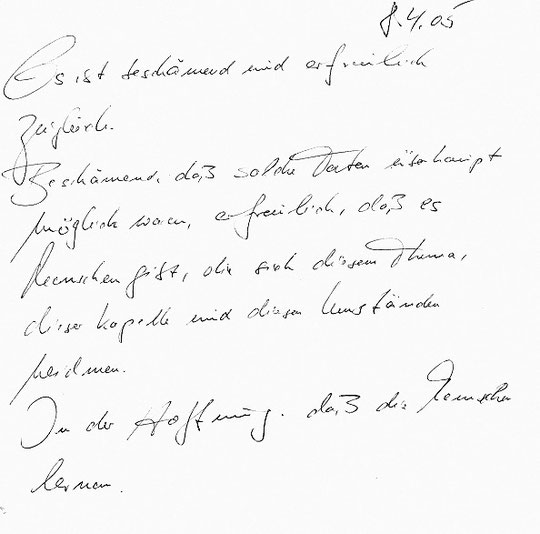 8.4.05
Es ist beschämend und erfreulich
zugleich.
Beschämend, daß solche Taten überhaupt
möglich waren, erfreulich, daß es
Menschen gibt, die sich diesem Thema,
dieser Kapelle und diesen Umständen
widmen.
In der Hoffnung, daß die Menschen
lernen.